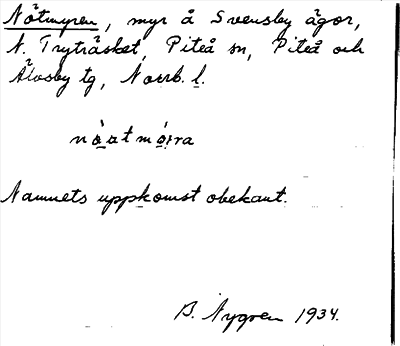 Nötmyren, myr å Svensby ägor,
N. Tryträsket, Piteå sn, Piteå och
Älvsby tg, Norrb. l.
Namnets uppkomst obekant.
B. Nygren 1934.